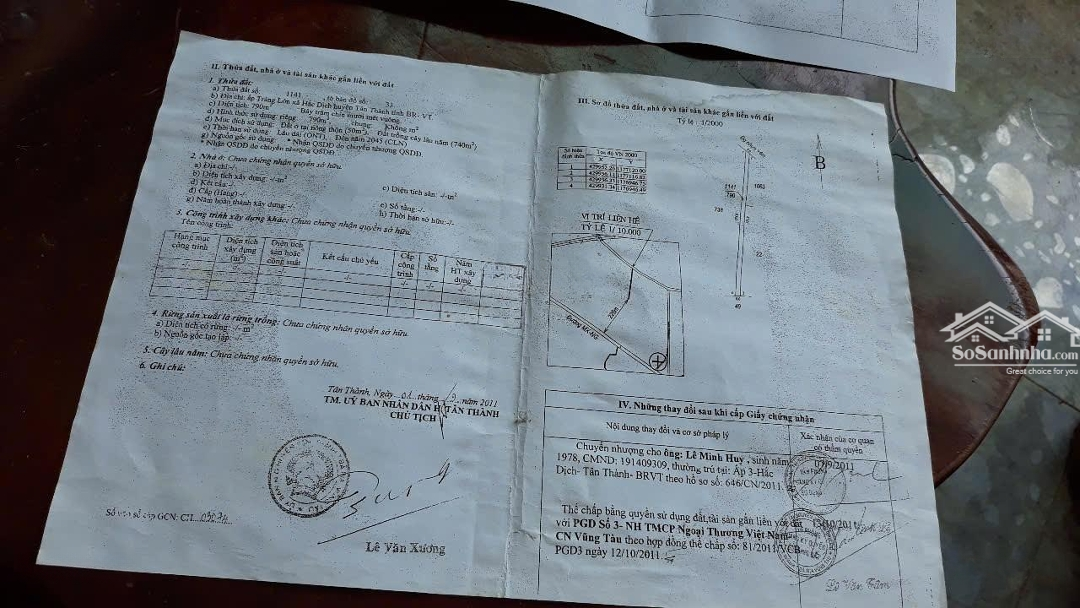 II. Thửa đất, nhà ở và tài sản khác gắn liền với đất
1. Thửa đất:
a) Thửa đất số: 1141 , tờ bản đồ số: 31
b) Địa chỉ: ấp Trảng Lớn xã Hắc Dịch huyện Tân Thành tỉnh BR- VT.
c) Diện tích: 790m² Bảy trăm chín mươi mét vuông.
d) Hình thức sử dụng: riêng 790m²; chung: Không m²
đ) Mục đích sử dụng: Đất ở tại nông thôn (50m²). Đất trồng cây lâu năm (740m²)
e) Thời hạn sử dụng: Lâu dài (ONT). Đến năm 2043 (CLN)
g) Nguồn gốc sử dụng: * Nhận QSDĐ do chuyển nhượng QSDĐ.
* Nhận QSDĐ do chuyển nhượng QSDĐ.
2. Nhà ở: Chưa chứng nhận quyền sở hữu.
a) Địa chỉ: -/-
b) Diện tích xây dựng: -/-m² c) Diện tích sàn: -/-m²
d) Kết cấu:-/-
đ) Cấp (Hạng) -/- e) Số tầng: -/-
g) Năm hoàn thành xây dựng: -/- h) Thời hạn sở hữu: -/-
3. Công trình xây dựng khác: Chưa chứng nhận quyền sở hữu.
Tên công trình:
Hạng mục công trình Diện tích xây dựng (m²) Diện tích sàn hoặc công suất Kết cấu chủ yếu Cấp công trình Số tầng Năm HT xây dựng
4. Rừng sản xuất là rừng trồng: Chưa chứng nhận quyền sở hữu.
a) Diện tích có rừng: -/- m²
b) Nguồn gốc tạo lập: -/-
5. Cây lâu năm: Chưa chứng nhận quyền sở hữu.
6. Ghi chú:
Tân Thành, Ngày 01 tháng 9 năm 2011
TM. UỶ BAN NHÂN DÂN H TÂN THÀNH
CHỦ TỊCH
Lê Văn Xương
Số vào sổ cấp GCN: CH
III. Sơ đồ thửa đất, nhà ở và tài sản khác gắn liền với đất
Tỷ lệ: 1/2000
B
Số hiệu đỉnh thửa Tọa độ VN 2000
X Y
1
2
3
4
1141
790
738
22
49
VỊ TRÍ LIÊN HỆ
TỶ LỆ 1/ 10.000
IV. Những thay đổi sau khi cấp Giấy chứng nhận
Nội dung thay đổi và cơ sở pháp lý
Xác nhận của cơ quan có thẩm quyền
Chuyển nhượng cho ông: Lê Minh Huy , sinh năm
1978, CMND: 191409309, thường trú tại: Ấp 3-Hắc
Dịch- Tân Thành- BRVT theo hồ sơ số: 646/CN/2011.
07/9/2011
Thế chấp bằng quyền sử dụng đất,tài sản gắn liền với đất
với PGD Số 3- NH TMCP Ngoại Thương Việt Nam
CN Vũng Tàu theo hợp đồng thế chấp số: 81/2011/VCB
PGD3 ngày 12/10/2011.
13/10/2011
SoSanhnha.com
Great choice for you